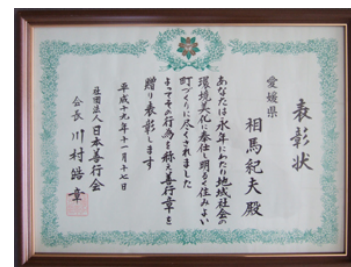 表彰状
愛媛県
相馬紀夫殿
あなたは永年にわたり地域社会の
環境美化に奉仕し明るく住みよい
町づくりに尽くされました
よってその行為を称え善行章を
贈り表彰します
平成十九年十一月十七日
社団法人日本善行会
会長川村皓章